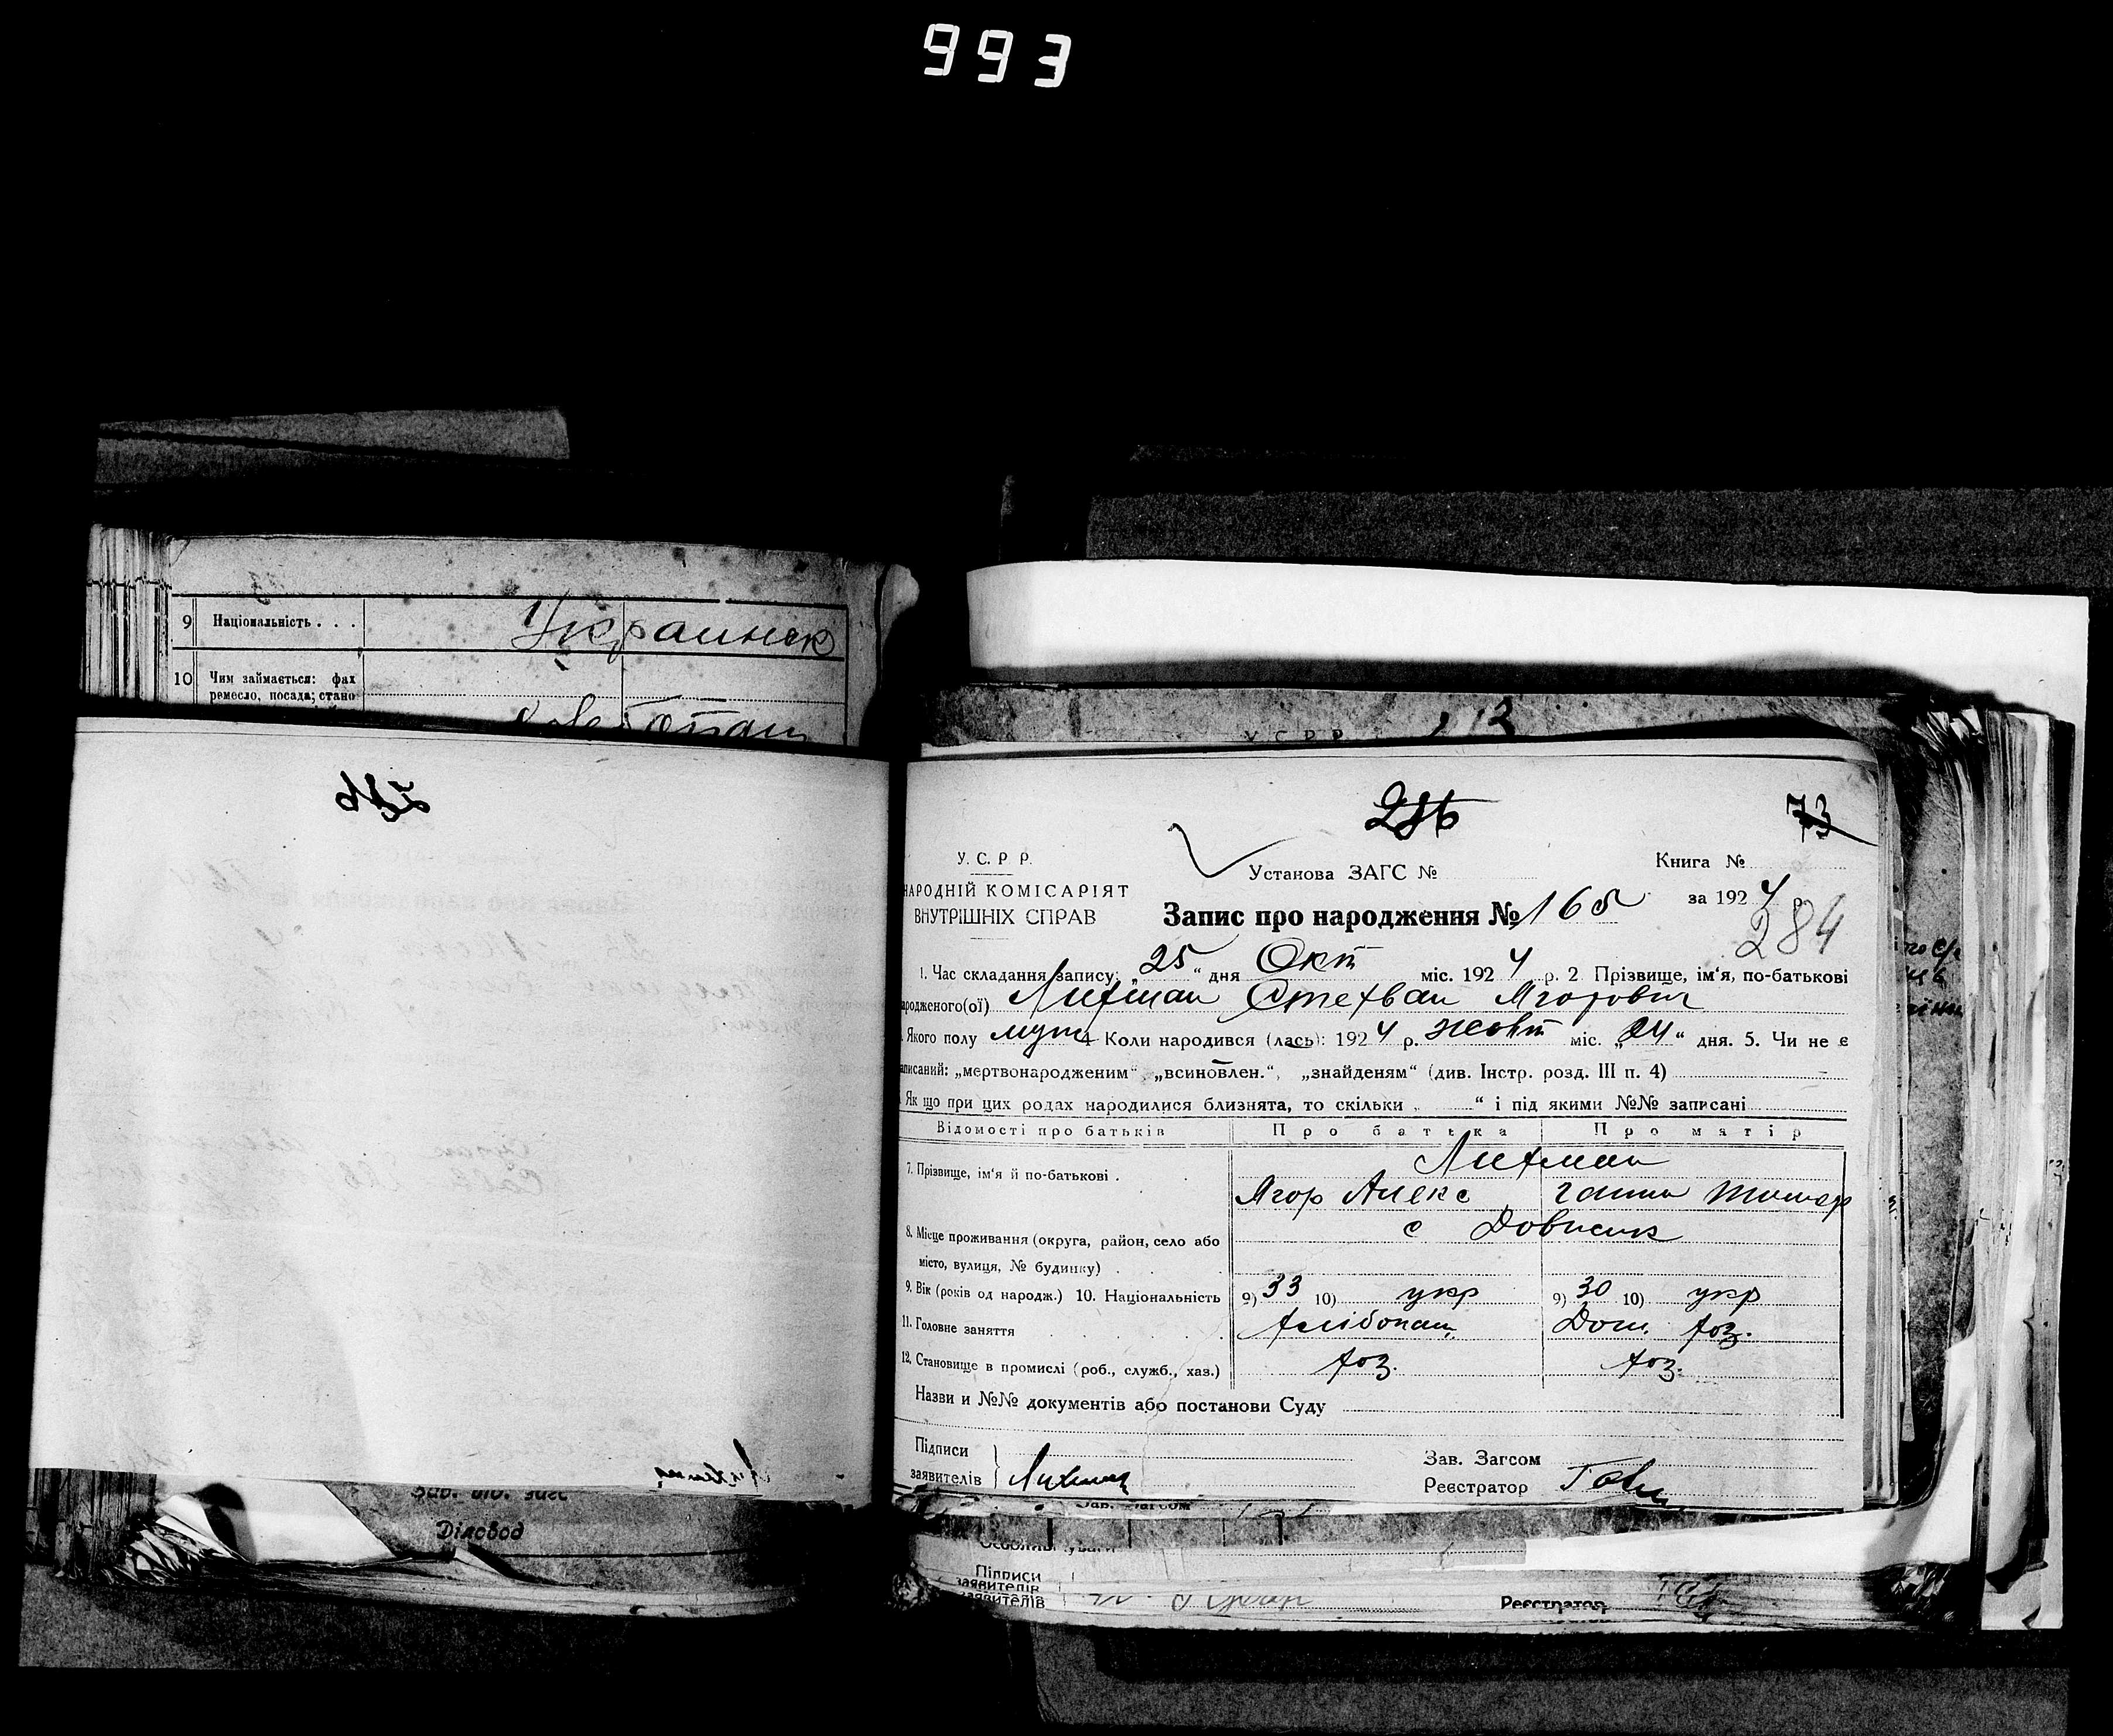 993
9 Національність . . .
Украинск
10 Чим займається: фах
ремесло, посада; стано
Зав. від. загс
Діловод
12
У С Р Р
286
73
У. С. Р Р.
Установа ЗАГС №
Книга №
НАРОДНІЙ КОМІСАРІЯТ
ВНУТРІШНІХ СПРАВ
Запис про народження № 165
за 1924 р.
284
1. Час складання запису: „25“ дня Окт міс. 1924 р. 2. Прізвище, ім‘я, по-батькові
народженого(ої) Лихман Стехван Ягорович
Якого полу муж 4 Коли народився (лась): 1924 р. жовт міс. „24“ дня. 5. Чи не є
записаний: „мертвонародженим“ „всиновлен.“, „знайденям“ (див. Інстр. розд. III п. 4)
Як що при цих родах народилися близнята, то скільки „ “ і під якими №№ записані
Відомості про батьків Про батька Про матір
Лихман
7. Прізвище, ім‘я й по-батькові .
Ягор Алекс Ганна
с
8. Місце проживання (округа, район, село або
місто, вулиця, № будинку) .
9. Вік (років од народж.) 10. Національність 9) 33 10) укр 9) 30 10) укр
11. Головне заняття хлібопаш. Дом. хоз.
12. Становище в промислі (роб., служб., хаз.) хоз. хоз.
Назви и №№ документів або постанови Суду
Підписи
заявителів
Лихман
Зав. Загсом
Реєстратор
Зав. Загсом
Підписи
заявителів
заявителів
Реєстратор